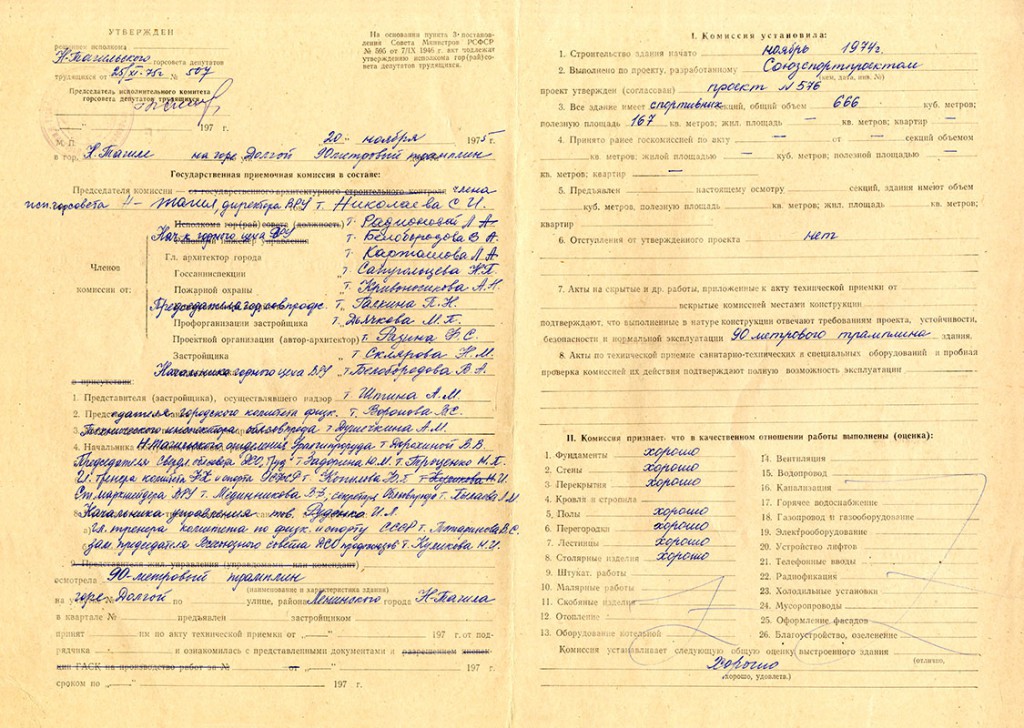 УТВЕРЖДЕН
решением исполкома
Н-Тагильского горсовета депутатов
трудящихся от 25/XI-75г. № 507
Председатель исполнительного комитета
горсовета депутатов трудящихся
197 г.
М. П.
На основании пункта 3 постанов-
ления Совета Министров РСФСР
№ 595 от 7/IX 1946 г. акт подлежит
утверждению исполкома гор(рай)со-
вета депутатов трудящихся.
20 — ноября 1975 г.
в гор. Н. Тагиле на горе Долгой 90 метровый трамплин
Государственная приемочная комиссия в составе:
Председателя комиссии — от государственного архитектурного строительного контроля члена
исп.горсовета Н-Тагил директора ВРУ т. Николаева С. И.
Исполкома гор(рай)совета (должность) т. Радионовой Л. А.
Нач-к горного цеха ВРУ т. Белобородова В. А.
Гл. архитектор города „ т. Карташова Л. А.
Членов
комиссии от:
Госсанинспекции „т. Сапугольцева Н. П.
Пожарной охраны „т. Кривоносикова А. Н.
Председателя горсовпрофс. т. Гаскина П. Н.
Профорганизации застройщика „т. Дьячкова М. П.
Проектной организации (автор-архитектор) т. Разина Ф. С.
Застройщика „ т. Склярова Н. М.
Начальника горного цеха ВРУ „т. Белобородова В. А.
в присутствии:
1. Представителя (застройщика), осуществлявшего надзор т. Шпина А. М.
2. Председателя городского комитета физк. т. Воронова В. С.
3. Технического инспектора облсовпрофа т. Душечкина А. М.
4. Начальника Н-Тагильского отделения т. Дорохиной В. В.
Председателя Свердл. облсовета ДСО „Труд" т. Задорина Ю. М. т. Троценко Н. П.
Гл. тренера комитета ФК и спорта РСФСР т. Копылова Ю. Л. т. Куликова Н. И.
Ст. маркшейдера ВРУ т. Мединникова В. Б., секретаря
8. Начальника управления — тов. Руденко И. Л.
гл. тренера комитета по физк. и спорту СССР т. В. С.
зам. председателя Всесоюзного совета ДСО профсоюзов т. Куликова Н. И.
9. Представителя жил. управления (управдомами или комендант),
осмотрела 90-метровый трамплин
(наименование и характеристика здания)
на горе Долгой № по „ улице, района Ленинского города Н-Тагила
в квартале № предъявлен застройщиком
принят пк по акту технической приемки от „ " 197 г. от под-
рядчика и ознакомилась с представленными документами а разрешением инспек-
ции ГАСК на производство работ за № от 197 г.
сроком по „ " 197 г.
I. Комиссия установила:
1. Строительство здания начато ноябрь 1974г.
2. Выполнено по проекту, разработанному Союзспортпроектом
(кем, дата, инв. №)
проект утвержден (согласован) проект N 576
3. Все здание имеет спортивных секций, общий объем 666 куб. метров;
полезную площадь 167 кв. метров; жил. площадь — кв. метров; квартир —
4. Принято ранее госкомиссией по акту — от — секций объемом
кв. метров; жилой площадью — куб. метров; полезной площадью —
кв. метров; квартир —
5. Предъявлен настоящему осмотру секций, здания имеют объем
куб. метров, полезную площадь кв. метров; жил. площадь кв. метров;
квартир
6. Отступления от утвержденного проекта нет
7. Акты на скрытые и др. работы, приложенные к акту технической приемки от
вскрытые комиссией местами конструкции
подтверждают, что выполненные в натуре конструкции отвечают требованиям проекта, устойчивости,
безопасности и нормальной эксплуатации 90 метрового трамплина здания.
8. Акты по технической приемке санитарно-технических и специальных оборудований и пробная
проверка комиссией их действия подтверждают полную возможность эксплуатации
II. Комиссия признает, что в качественном отношении работы выполнены (оценка):
1. Фундаменты хорошо
2. Стены хорошо
3. Перекрытия хорошо
4. Кровля и стропила
5. Полы хорошо
6. Перегородки хорошо
7. Лестницы хорошо
8. Столярные изделия хорошо
9. Штукат. работы
10. Малярные работы
11. Скобяные изделия
12. Отопление
13. Оборудование котельной
14. Вентиляция
15. Водопровод
16. Канализация
17. Горячее водоснабжение
18. Газопровод и газооборудование
19. Электрооборудование
20. Устройство лифтов
21. Телефонные вводы
22. Радиофикация
23. Холодильные установки
24. Мусоропроводы
25. Оформление фасадов
26. Благоустройство, озелевение
Комиссия устанавливает следующую общую оценку выстроенного здания
(отлично,
хорошо
хорошо, удовлета.)